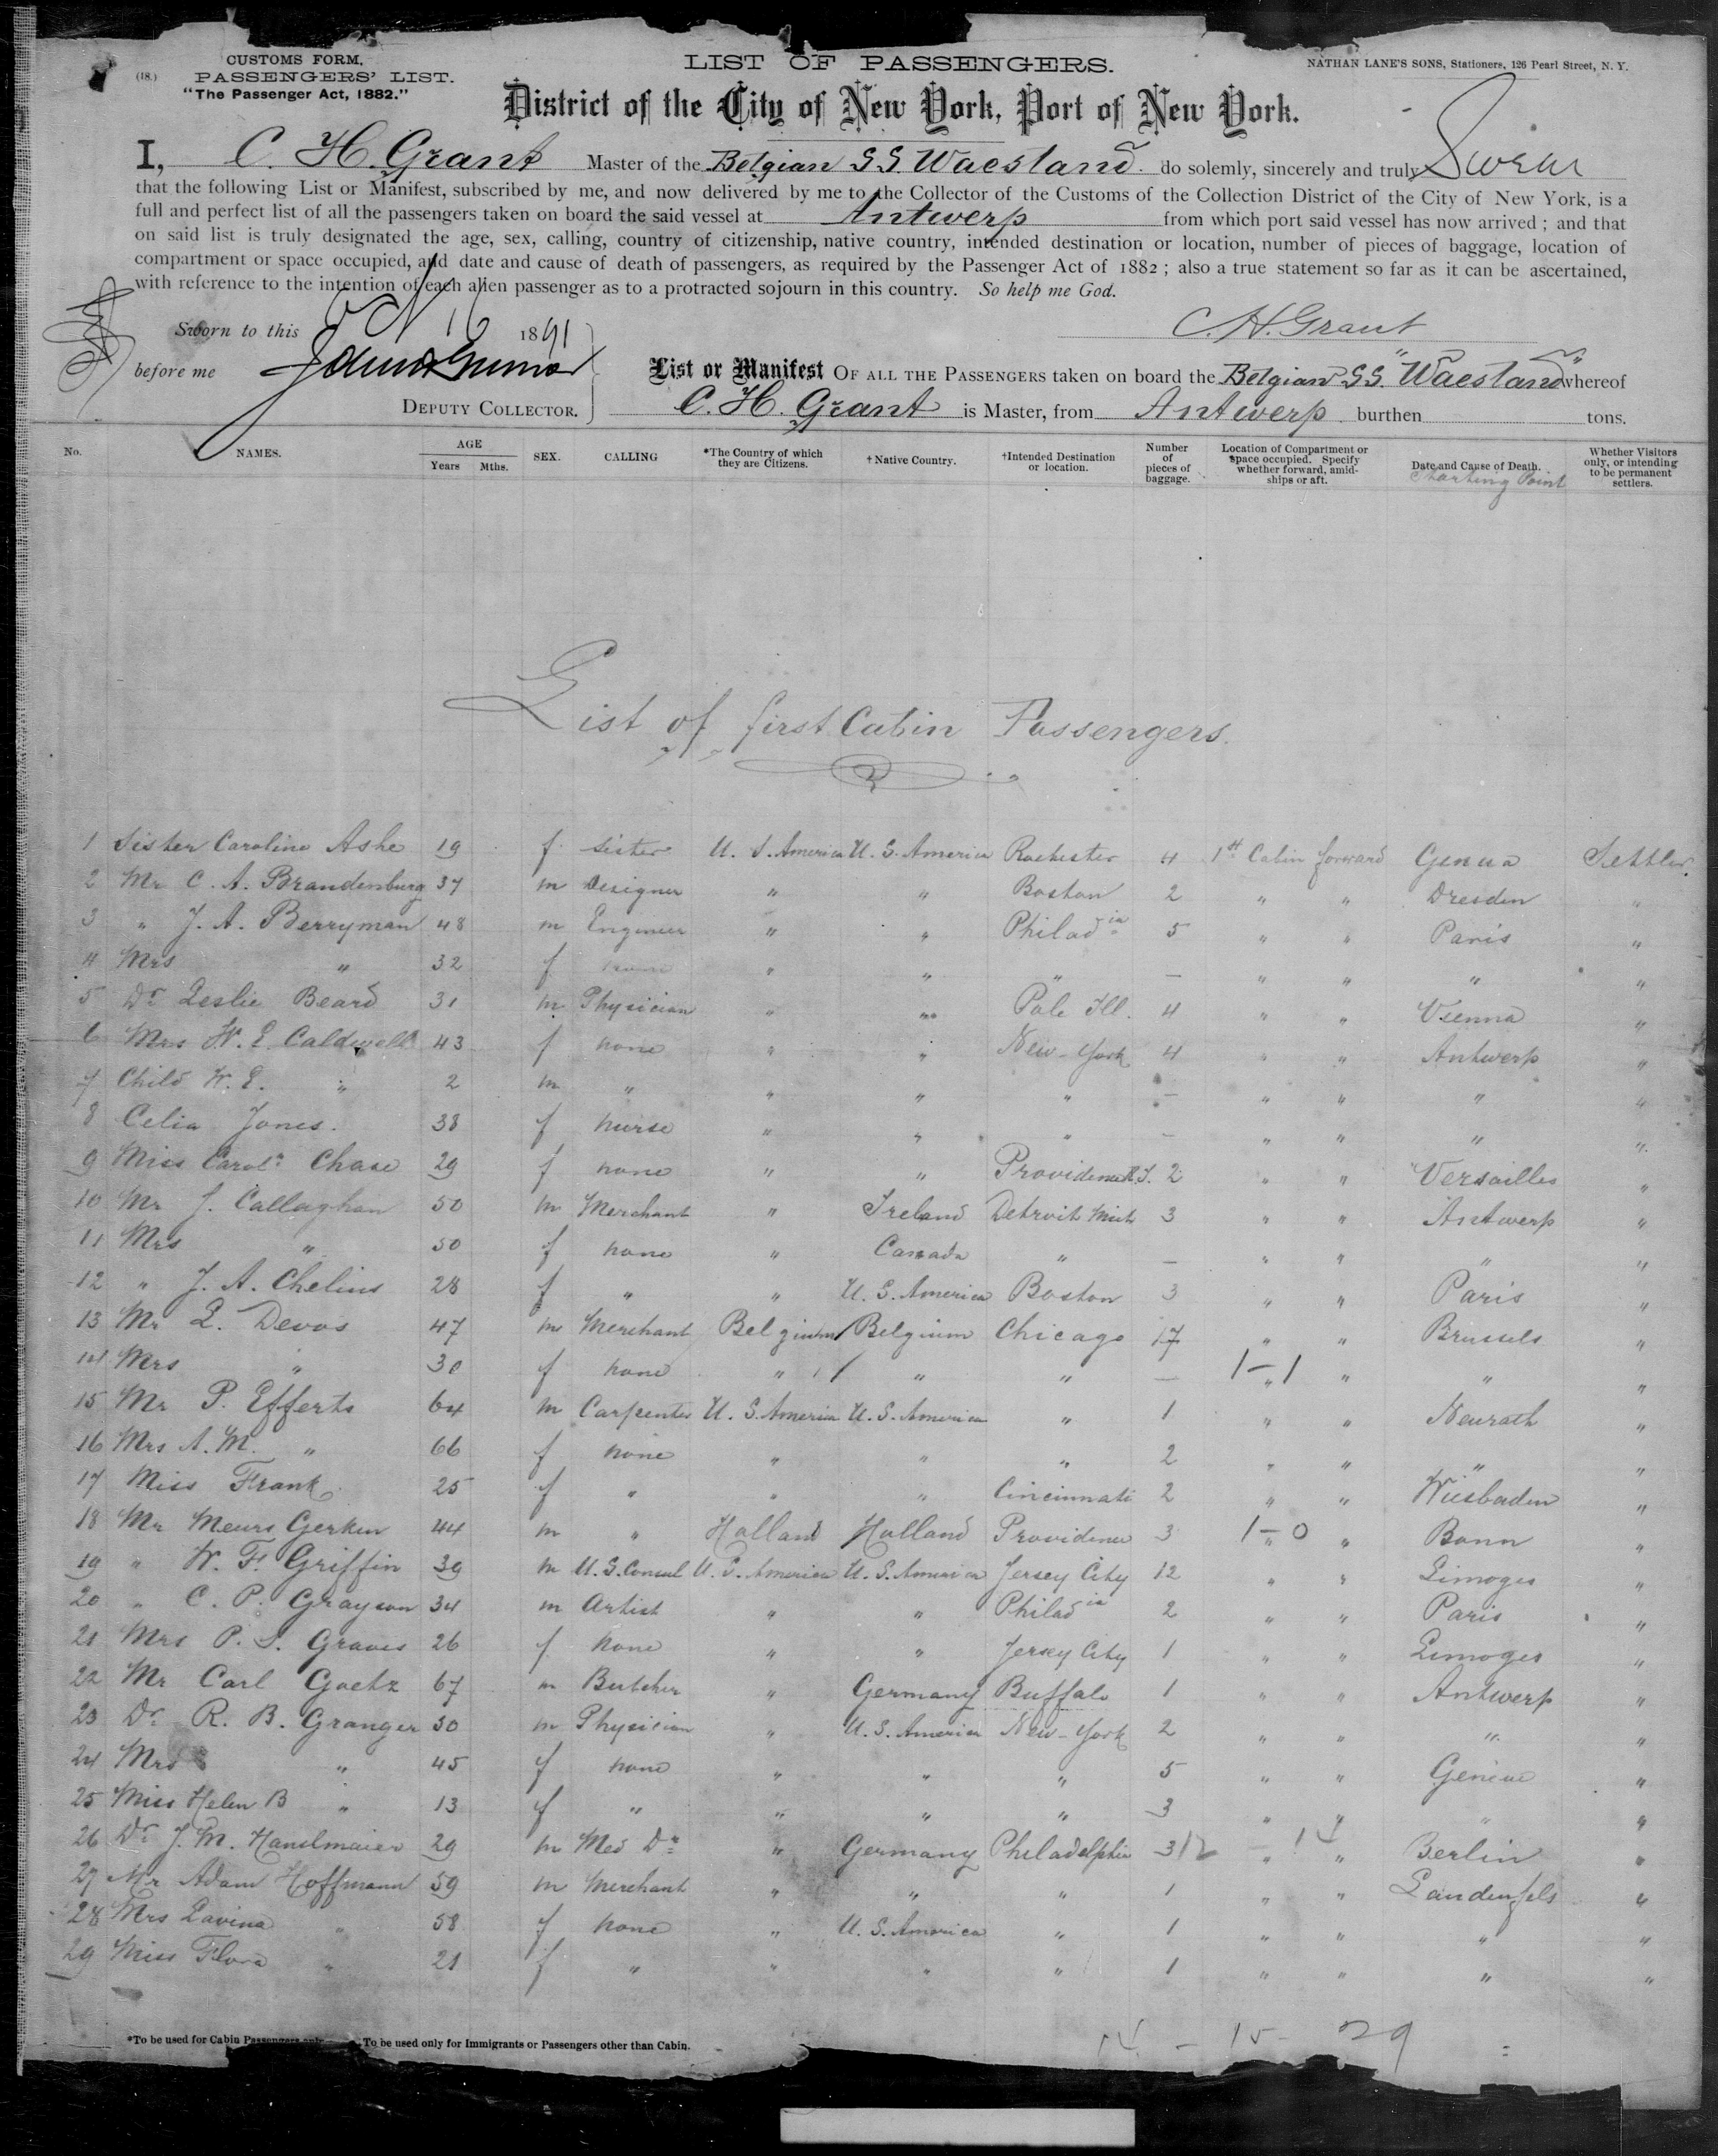 CUSTOMS FORM,
(18.) PASSENGERS' LIST.
"The Passenger Act, 1882."
LIST OF PASSENGERS.
NATHAN LANE'S SONS, Stationers, 126 Pearl Street, N. Y.
District of the City of New York, Port of New York.
I, C. H. Grant Master of the Belgian S.S. Waesland do solemnly, sincerely and truly Swear
that the following List or Manifest, subscribed by me, and now delivered by me to the Collector of the Customs of the Collection District of the City of New York, is a
full and perfect list of all the passengers taken on board the said vessel at Antwerp from which port said vessel has now arrived ; and that
on said list is truly designated the age, sex, calling, country of citizenship, native country, intended destination or location, number of pieces of baggage, location of
compartment or space occupied, and date and cause of death of passengers, as required by the Passenger Act of 1882 ; also a true statement so far as it can be ascertained,
with reference to the intention of each alien passenger as to a protracted sojourn in this country. So help me God.
Sworn to this N 16 1891
C. H. Grant
before me
List or Manifest OF ALL THE PASSENGERS taken on board the Belgian S.S. "Waesland" whereof
DEPUTY COLLECTOR. C. H. Grant is Master, from Antwerp burthen tons.
No. NAMES. AGE Years Mths. SEX. CALLING *The Country of which they are Citizens. †Native Country. †Intended Destination or location. Number of pieces of baggage. Location of Compartment or space occupied. Specify whether forward, amidships or aft. Date and Cause of Death. Starting Point Whether Visitors only, or intending to be permanent settlers.
List of first Cabin Passengers.
1 Sister Caroline Ashe 19 f Sister U. S. America U. S. America Rochester 4 1st Cabin forward Genua Settler.
2 Mr C. A. Brandenburg 37 m Designer " " Boston 2 " " Dresden "
3 " J. A. Berryman 48 m Engineer " " Philadia 5 " " Paris "
4 Mrs " 32 f none " " " — " " " "
5 Dr Leslie Beard 31 m Physician " " Polo Ill. 4 " " Vienna "
6 Mrs W. E. Caldwell 43 f none " " New-York 4 " " Antwerp "
7 Child W. E. " 2 m " " " " — " " " "
8 Celia Jones. 38 f nurse " " " — " " " "
9 Miss Carol. Chase 29 f none " " Providence R.I. 2 " " Versailles "
10 Mr J. Callaghan 50 m Merchant " Ireland Detroit Mich 3 " " Antwerp "
11 Mrs " 50 f none " Canada " — " " " "
12 " J. A. Chelius 28 f " " U. S. America Boston 3 " " Paris "
13 Mr L. Devos 47 m Merchant Belgium Belgium Chicago 17 " " Brussels "
14 Mrs " 30 f none " " " — 1-1 " " " "
15 Mr P. Efferts 64 m Carpenter U. S. America U. S. America " 1 " " Neurath "
16 Mrs A. M. " 66 f none " " " 2 " " " "
17 Miss Frank 25 f " " " Cincinnati 2 " " Wiesbaden "
18 Mr Meurs Gerken 44 m " Holland Holland Providence 3 1-0 " " Bonn "
19 " W. F. Griffin 39 m U.S. Consul U. S. America U. S. America Jersey City 12 " " Limoges "
20 " C. P. Grayson 34 m Artist " " Philadia 2 " " Paris "
21 Mrs P. S. Graves 26 f none " " Jersey City 1 " " Limoges "
22 Mr Carl Goetz 67 m Butcher " Germany Buffalo 1 " " Antwerp "
23 Dr R. B. Granger 50 m Physician " U. S. America New-York 2 " " " "
24 Mrs " 45 f none " " " 5 " " Genève "
25 Miss Helen B " 13 f " " " " 3 " " " "
26 Dr J. M. Hanslmaier 29 m Med Dr " Germany Philadelphia 3 12 " " Berlin "
27 Mr Adam Hoffmann 59 m Merchant " " " 1 " " Landenfels "
28 Mrs Lavina " 58 f none " U. S. America " 1 " " " "
29 Miss Flora " 21 f " " " " 1 " " " "
*To be used for Cabin Passengers only. To be used only for Immigrants or Passengers other than Cabin.
14 - 15 - 29